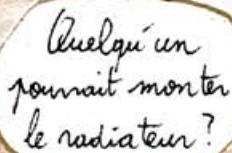 Quelqu'un
pourrait monter
le radiateur ?